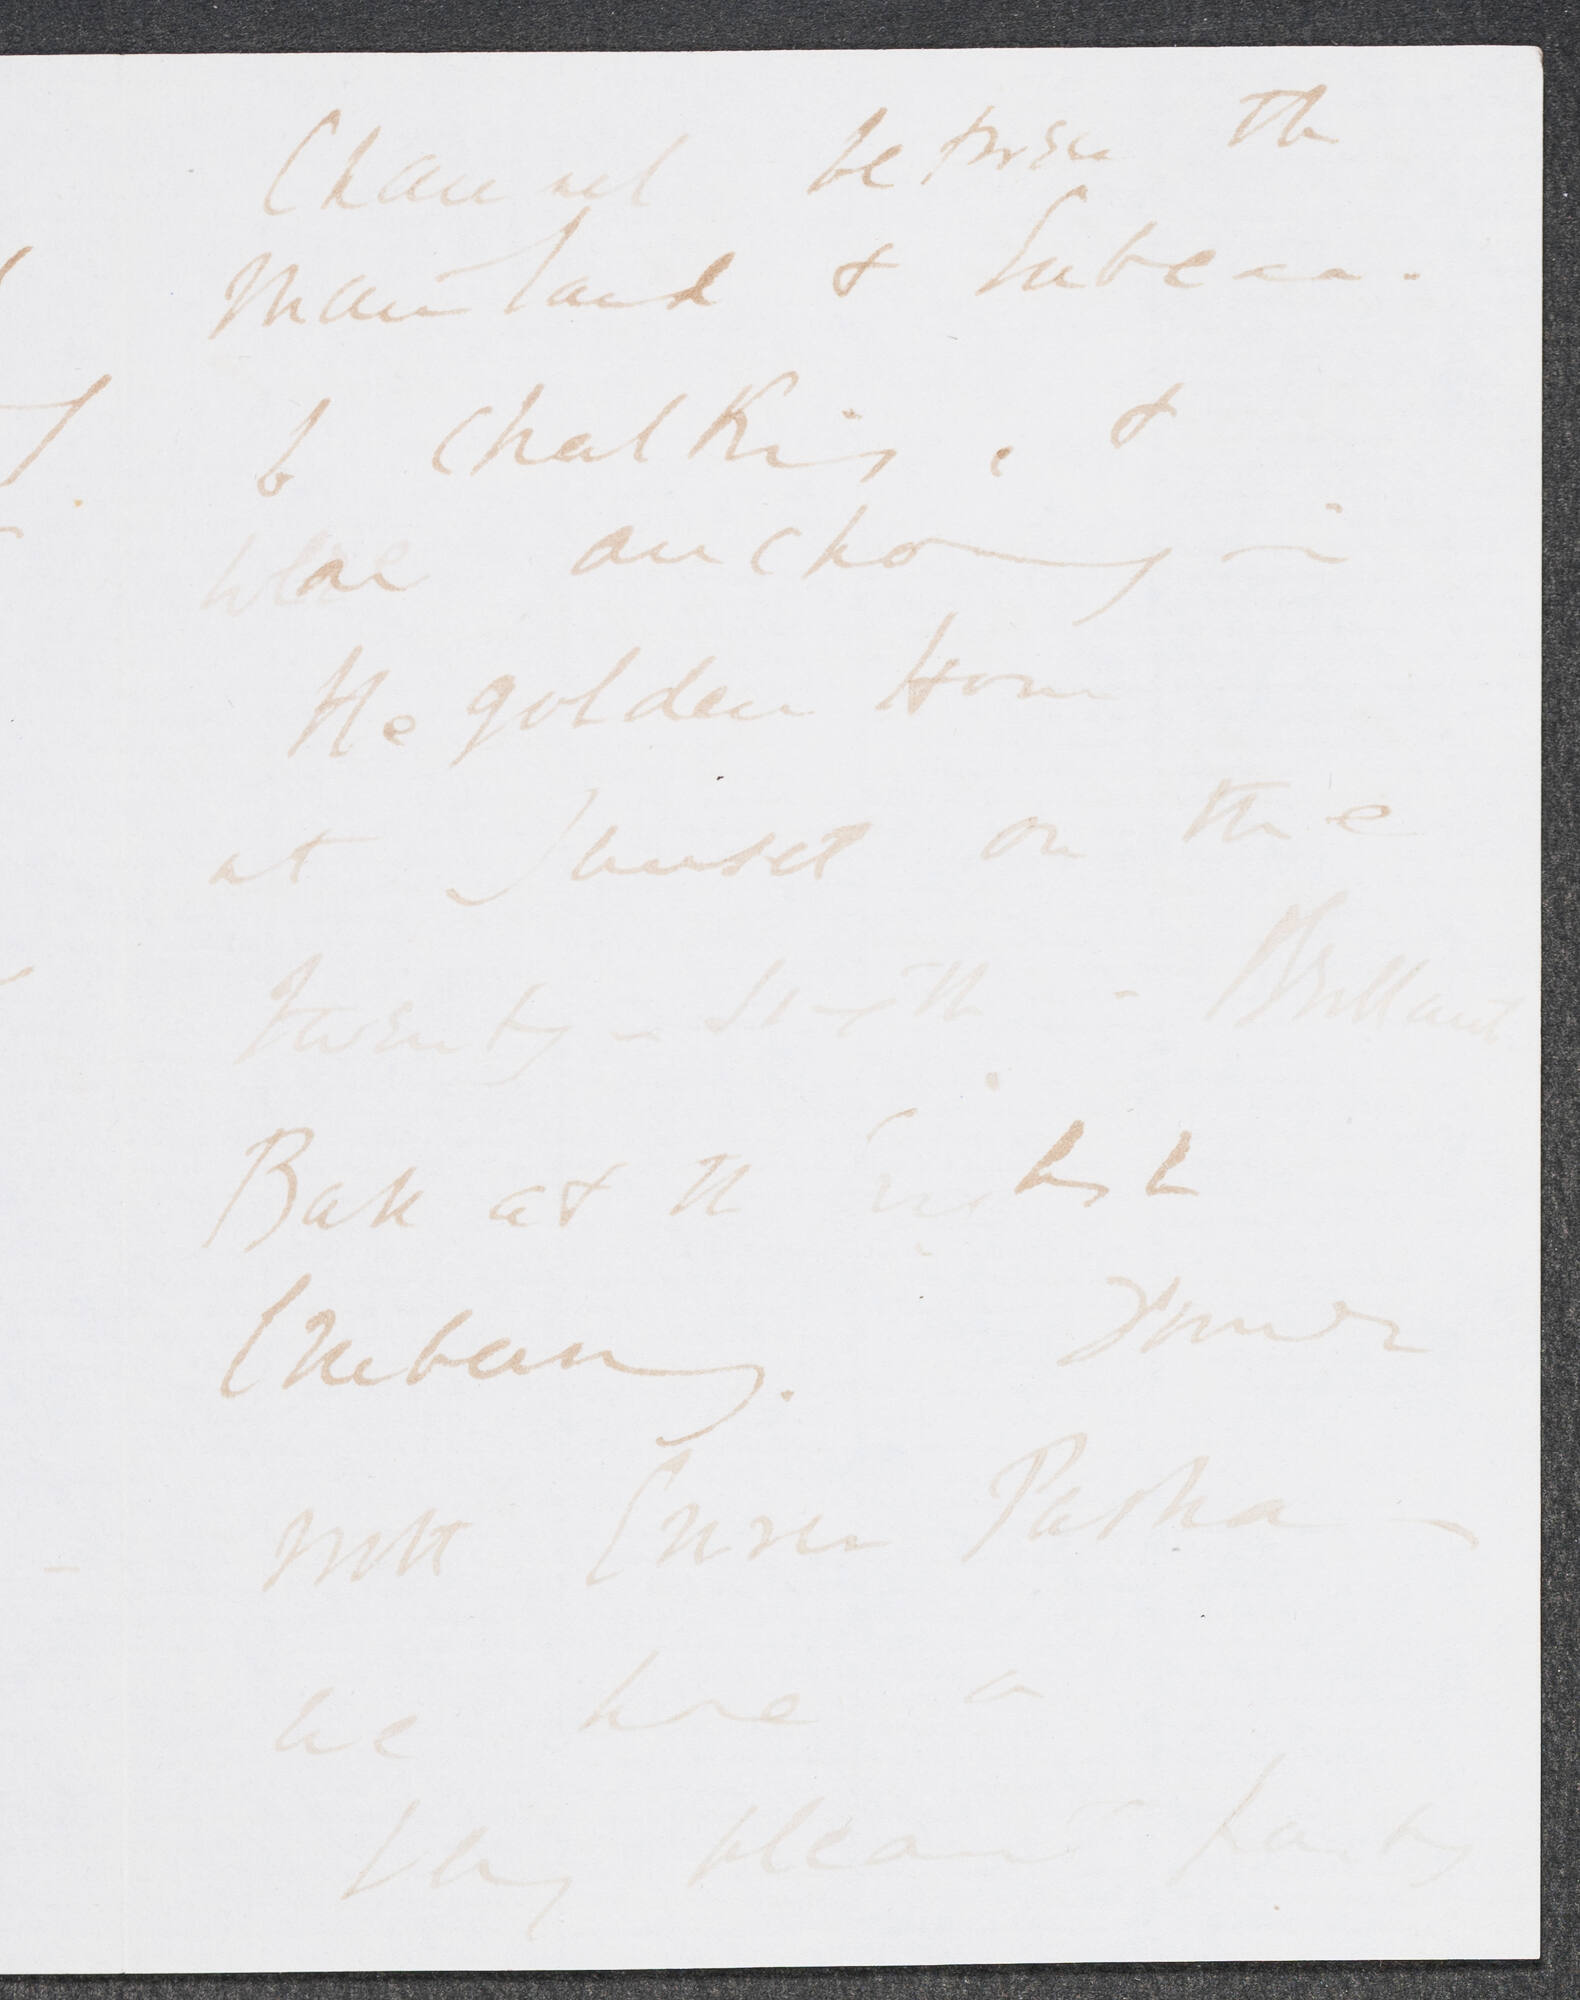 Channel between the
Mainland & Eubea.
to Chalkis, &
were anchoring in
the golden Horn
at Sunset on the
twenty-sixth - Brilliant
Ball at the English
Embassy. Dinner
with Enver Pasha -
we have a
very pleasant party